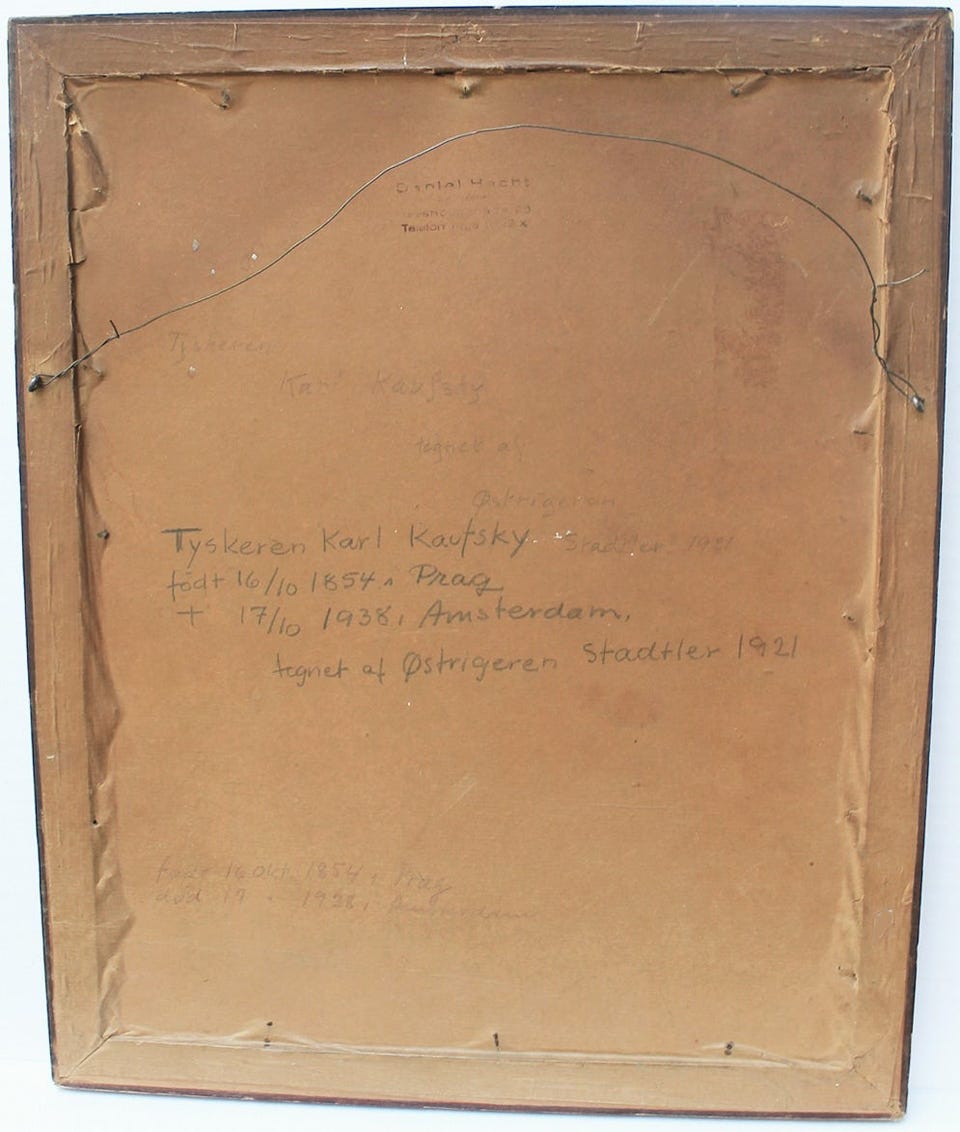 Daniel Hecht
Telefon
Tyskeren
Karl Kautsky
tegnet af
Østrigeren
Stadtler 1921
Tyskeren Karl Kautsky.
født 16/10 1854 i Prag
+ 17/10 1938, Amsterdam,
tegnet af Østrigeren Stadtler 1921
født 16 Okt. 1854, Prag
død 17 " 1938, Amsterdam